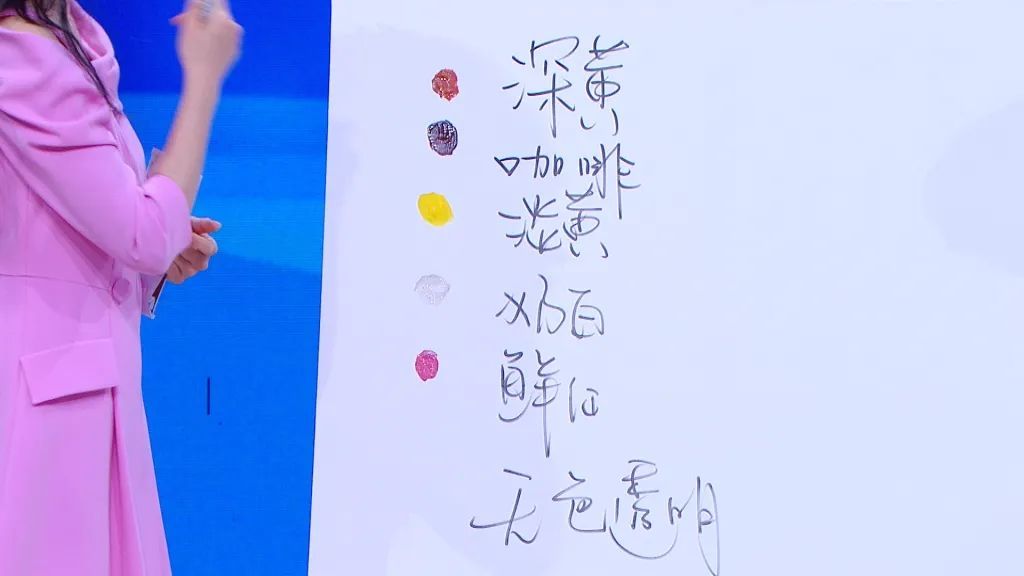 深黄
咖啡
淡黄
奶白
鲜红
无色透明